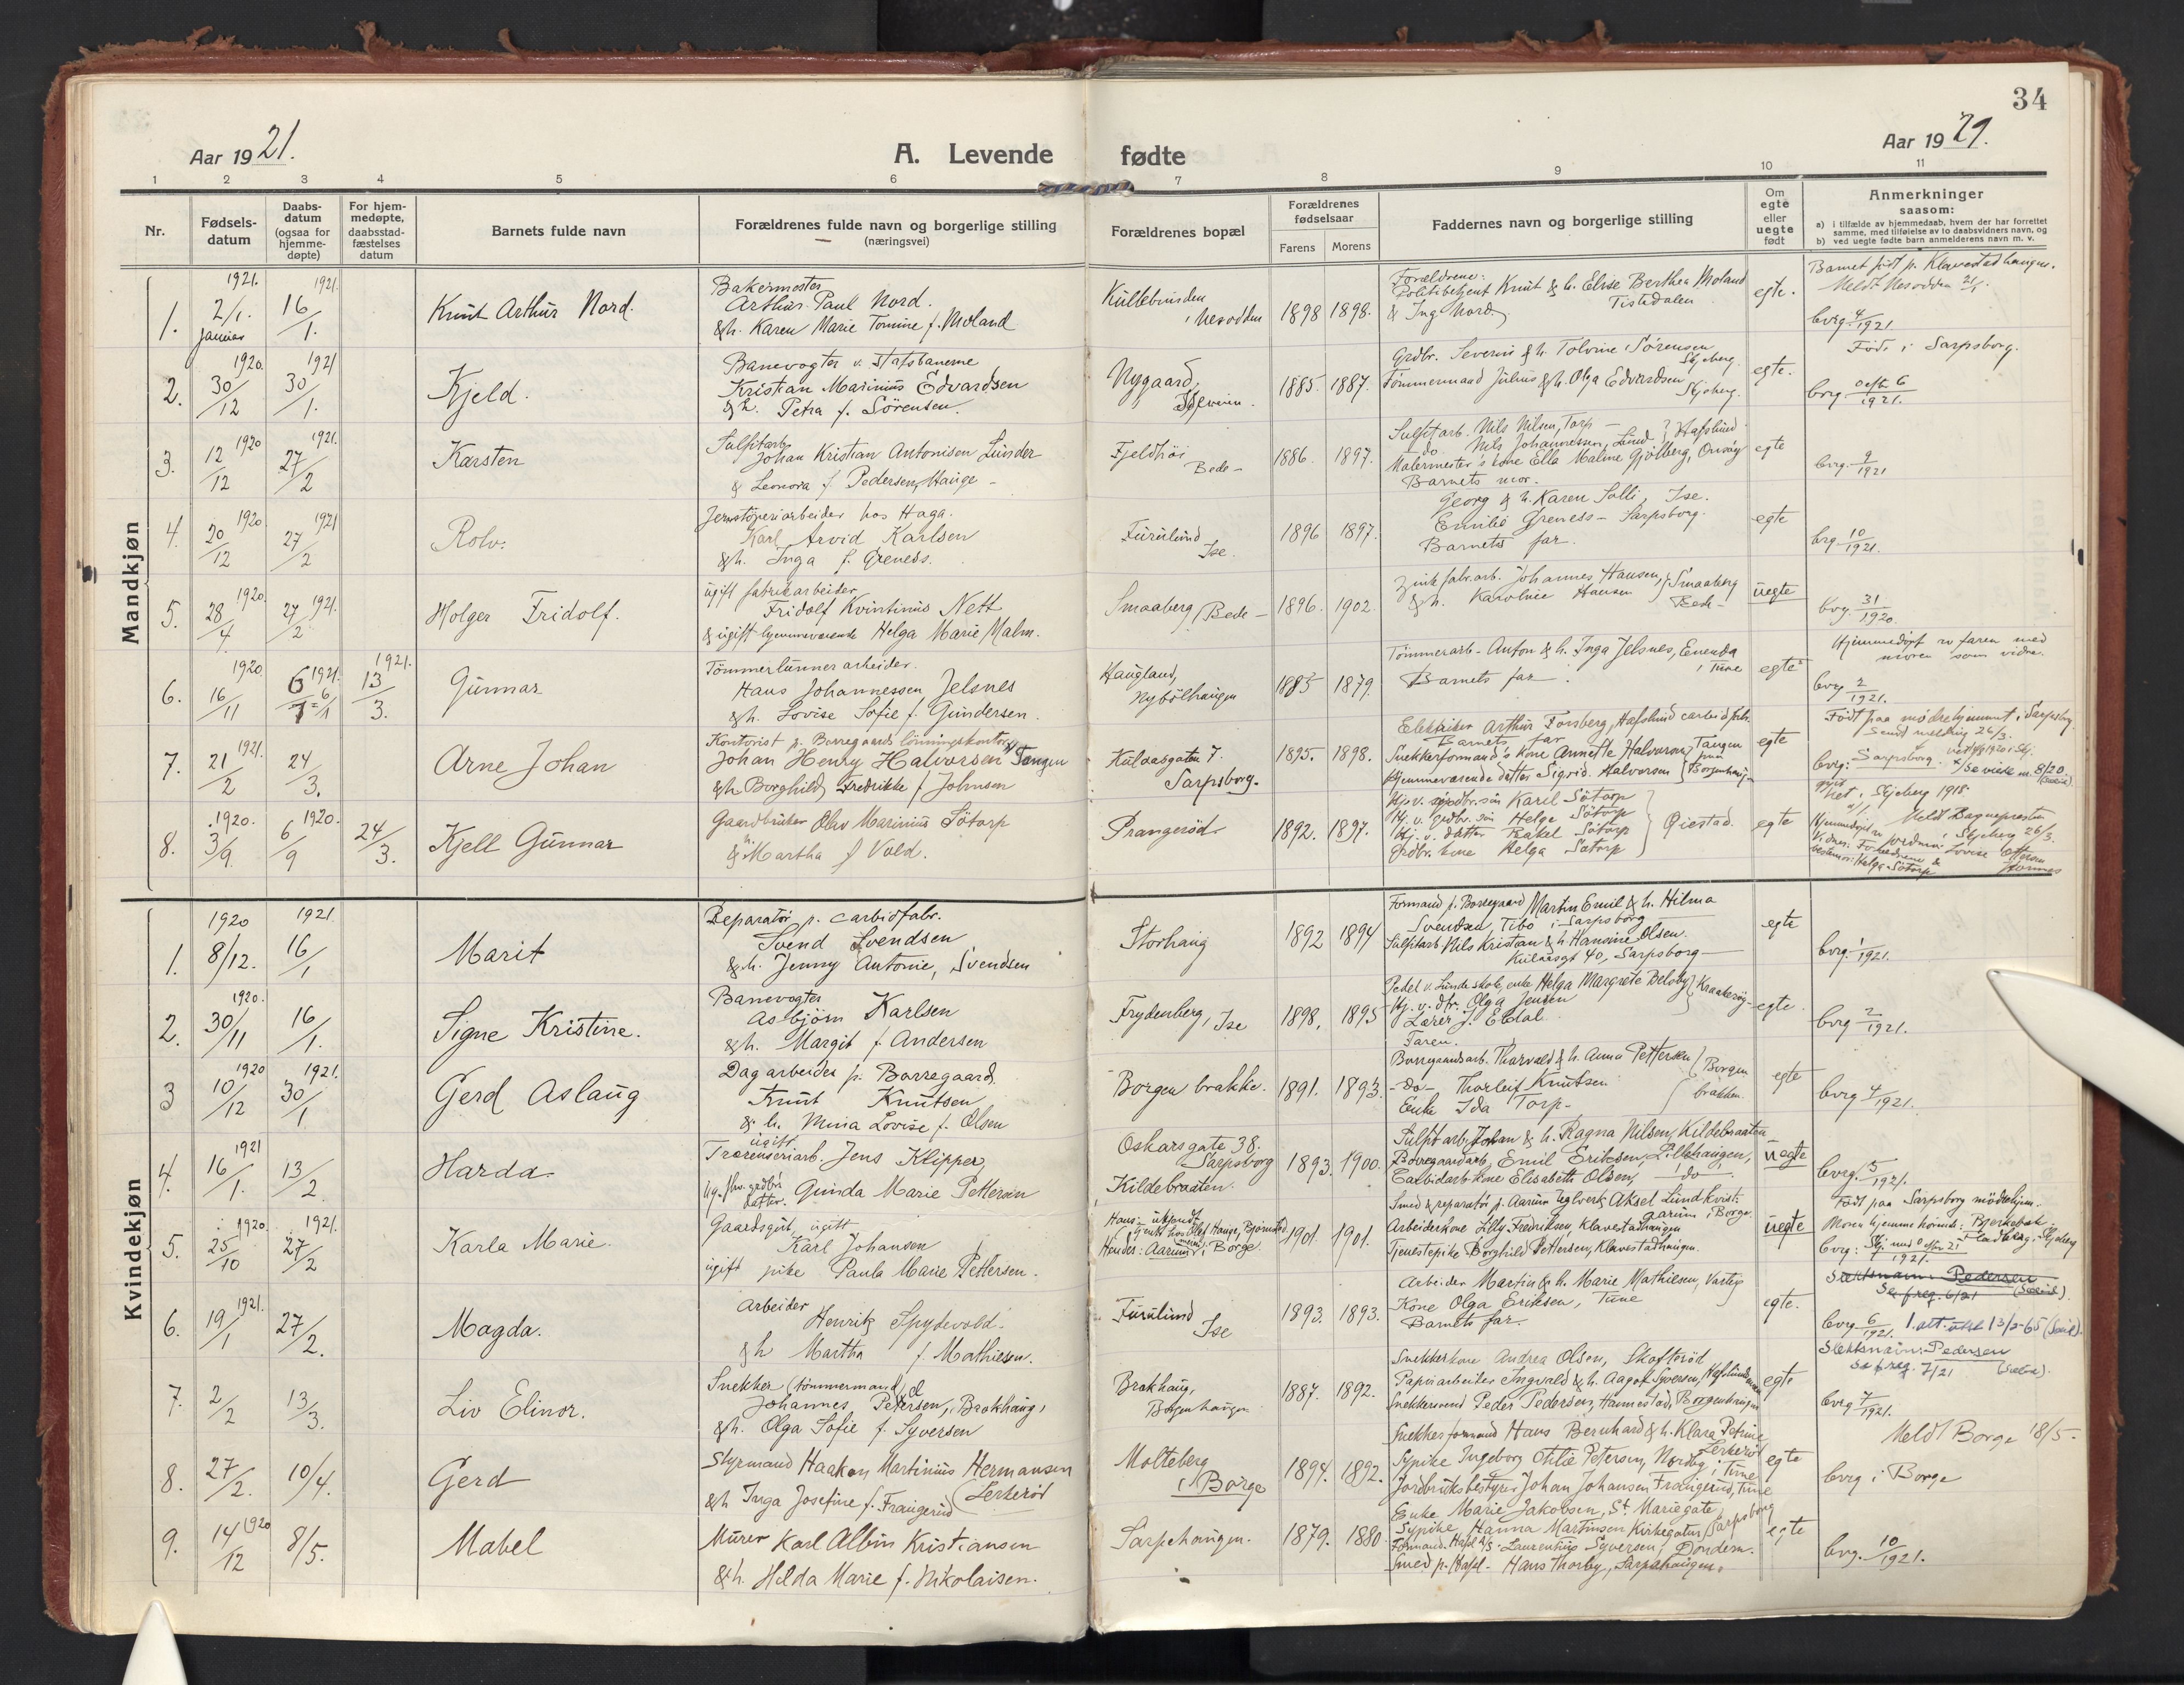 34
Aar 1921.
A. Levende fødte
Aar 1921.
1 2 3 4 5 6 7 8 9 10 11
Nr.
Fødsels-
datum
Daabs-
datum
(ogsaa for
hjemme-
døpte)
For hjem-
medøpte,
daabsstad-
fæstelses
datum
Barnets fulde navn
Forældrenes fulde navn og borgerlige stilling
(næringsvei)
Forældrenes bopæl
Forældrenes
fødselsaar
Farens Morens
Faddernes navn og borgerlige stilling
Om
egte
eller
uegte
født
Anmerkninger
saasom:
a) i tilfælde av hjemmedaab, hvem der har forrettet
samme, med tilføielse av to daabsvidners navn, og
b) ved uegte fødte barn anmelderens navn m. v.
Mandkjøn
1. 1921. 2/1. januar 1921. 16/1. Knut Arthur Nord.
Bakermester
Arthur Paul Nord.
&h. Karen Marie Tomine f. Moland
Nesodden 1898 1898.
Forældrene:
Politibetjent Knut & h. Elise Berthea Moland
& Ing Nord Tistedalen
egte.
Meldt Nesodden
bvrg. 4/1921.
2. 1920. 30/12 1921 30/1. Kjeld.
Banevogter v. statsbanerne
Kristian Marinius Edvardsen
&h. Petra f. Sörensen.
Nygaard, 1885. 1887.
Grdbr. Severin & h. Tolvine Sörensen Skjeberg.
Tömmermand Julius &h. Olga Edvardsen Skjeberg.
egte.
Föd i Sarpsborg.
bvrg. 6/1921.
3. 12/12 1920 1921. 27/2 Karsten
Sulfitarb.
Johan Kristian Antonisen Lunder
& Leonora f. Pedersen, Hauge -
Fjeldhöi Bede- 1886. 1897.
Sulfitarb. Nils Nilsen, Torp -
do Nils Johannessen, Lund } Hafslund
Malermester's kone Ella Malme Gjölberg, Onsöy
Barnets mor.
egte
bvrg. 9/1921
4. 20/12 1920 1921 27/2 Rolv.
Jernstöperiarbeider hos Haga.
Karl Arvid Karlsen
&h. Inga f. Greness.
Furulund Ise. 1896 1897.
Georg & h. Karen Solli, Ise.
Emilie Greness - Sarpsborg.
Barnets far.
egte
bvrg 10/1921.
5. 28/4. 1920. 27/2 1921. Holger Fridolf.
ugift fabrikarbeider
Fridolf Kvintinius Nett
& ugift hjemmeværende Helga Marie Malm.
Smaaberg, Bede- 1896. 1902.
Zink fabr.arb. Johannes Hansen, } Smaaberg
&h. Karoline Hansen Bede-
uegte
bvrg. 31/1920.
6. 1920. 16/11 6/1 1921. 1921. 13/3. Gunnar
Tömmerlunner arbeider.
Hans Johannessen Jelsnes
&h. Lovise Sofie f. Gundersen.
Haugland, Nybölhaugen 1885 1879.
Tömmerarb. Anton & h. Inga Jelsnes, Enenda i Tune
Barnets far.
egte
Hjemmedöpt av faren med
moren som vidne.
bvrg 2/1921.
7. 21/2 1921. 24/3. Arne Johan
Kontorist p. Borregaards lönningskontor
Johan Henry Halvorsen Tangen
&h Borghild Fredrikke f. Johnsen
Kulaasgaten 7. Sarpsborg. 1895. 1898.
Elektriker Arthur Forsberg, Hafslund carbidfabr.
Barnets far
Snekkerformand's kone Annette Halvorsen } Tangen
Hjemmeværende datter Sigrid Halvorsen } Borgenhaug-
egte
Födt paa mödrehjemmet i Sarpsborg.
Send melding 26/3.
bvrg: Sarpsborg.
8. 1920. 3/9. 6/9 1920. 24/3. Kjell Gunnar
Gaardbruker Olav Marinius Sötorp
&h. Martha f Vold.
Prangeröd. 1892. 1897.
Hj.v. grdbr. sön Karel Sötorp
Hj. v. grdbr. sön Helge Sötorp
Hj. v. datter Rakel Sötorp
Grdbr. kone Helga Sötorp } Öiestad.
egte
viet i Skjeberg 1918.
Kvindekjøn
1. 1920 8/12. 1921. 16/1 Marit
Reparatör p. carbidfabr.
Svend Svendsen
&h. Jenny Antonie, Svendsen
Storhaug 1892 1894
Formand p. Borregaard Martin Emil & h. Hilma
Svendsen, Tibo i Sarpsborg
Sulfitarb. Nils Kristian & h. Hansine Olsen.
Kulaasgt 40, Sarpsborg-
egte
bvrg. 1/1921.
2. 1920. 30/11 16/1. Signe Kristine.
Banevogter
Asbjörn Karlsen
&h. Margit f Andersen
Frydenberg, Ise 1898. 1895
Pedel v. Lunde skole, enke Helga Margrete Delsby } Kraakeröy-
Hj. v. dtr. Olga Jensen
Lærer J. Eldal
Faren.
egte.
bvrg 2/1921.
3 1920 10/12 1921. 30/1 Gerd Aslaug
Dagarbeider p. Borregaard.
Knut Knutsen
& h. Mina Lovise f. Olsen
Borgen brakke. 1891. 1893.
Borregaardsarb. Thorvald & h. Anna Pettersen } Borgen
-do- Thorleif Knutsen } brakken.
Enke Ida Torp-
egte
bvrg 4/1921.
4. 16/1. 1921 13/2. Harda.
ugift
Jens Klipper,
ug. grdbr. datter. Gunda Marie Pettersen
Oskarsgate 38. Sarpsborg
Kildebraaten. 1893. 1900.
Sulfitarb. Johan & h. Ragna Nilsen, Kildebraaten
Borregaardarb. Emil Eriksen, Lillehaugen,
Carbidarb. kone Elisabeth Olsen, -do-
uegte
bvrg. 5/1921.
5. 25/10 1920. 1921. 27/2 Karla Marie.
Gaardsgut, ugift
Karl Johansen
ugift pike Paula Marie Pettersen.
Hans: ukjendt
Hendes: Aarum i Borge 1901. 1901.
Smed & reparatör p. Aarum teglverk Aksel Lundkvist. Aarum i Borge.
Arbeiderkone Lilly Fredriksen, Klavestadhaugen
Tjenestepike Borghild Pettersen, Klavestadhaugen.
uegte
Födt paa Sarpsborg mödrehjem.
6. 19/1 1921. 27/2. Magda.
Arbeider
Henrik Spydevold.
&h Martha f. Mathiesen.
Furulund Ise 1893. 1893.
Arbeider Martin & h. Marie Mathiesen, Varteig
Kone Olga Eriksen, Tune
Barnets far.
egte.
Slektsnavn: Pedersen
Se freg. 6/21
bvrg 6/1921. 1. att. utst 13/2-65
7. 2/2 13/3. Liv Elinor.
Snekker (tömmermand)
Johannes Pedersen, Brokhaug,
&h. Olga Sofie f. Syversen
Brokhaug, Borgenhaugen 1887. 1892.
Snekkerkone Andrea Olsen, Skofteröd
Papirarbeider Ingvald & h. Aagot Syversen, Hafslund
Snekkersvend Peder Pedersen, Hannestad, Borgenhaugen
egte
Slektsnavn: Pedersen
Se freg. 7/21
bvrg 7/1921.
8. 27/2. 10/4. Gerd
Styrmand Haakon Martinius Hermansen
&h Inga Josefine f. Frangerud (Lerkeröd
Molteberg i Borge 1894. 1892.
Snekkerformand Hans Bernhard & h. Klara Petrine Lerkeröd
Sypike Ingeborg Otilie Petersen, Nordby i Tune
Jordbruksbestyrer Johan Johansen Frangerud, Tune
egte
Meldt Borge 18/5-
bvrg i Borge
9. 14/12 1920 8/5. Mabel
Murer Karl Albin Kristiansen
&h. Hilda Marie f. Nikolaisen.
Sarpehaugen. 1879. 1880
Enke Marie Jakobsen, St. Mariegate, Sarpsborg
Sypike Hanna Martinsen Kirkegaten
Formand. Hafsl A/S Laurentius Syversen, Dondern.
Smed p. Hafsl- Hans Thorby, Sarpehaugen.
egte
bvrg. 10/1921.